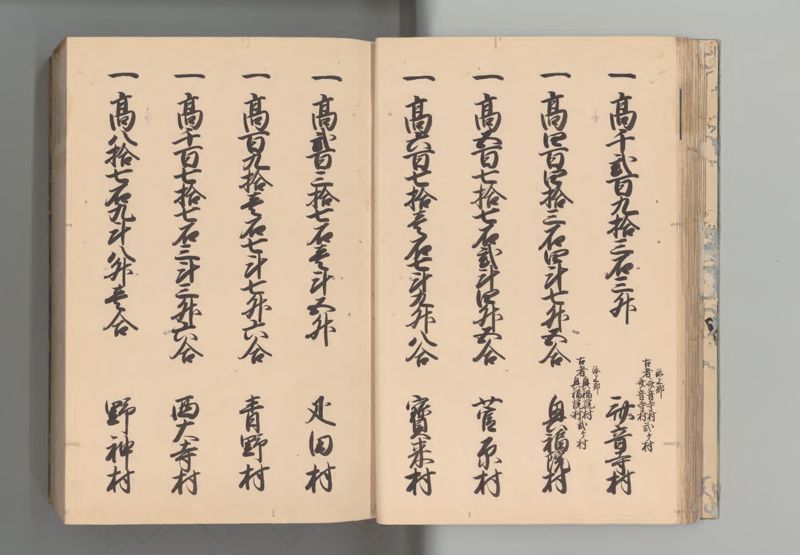 一 高千弐百九拾三石三升
古者 音寺村 音寺村弐ヶ村
音寺村
一 高四百四拾三石四斗七升五合
古者興福院村興福院村弐ヶ村
興福院村
一 高五百七拾七石弐斗四升五合 菅原村
一 高六百七拾壱石七斗九升八合 寳来村
一 高弐百三拾七石壱斗五升 疋田村
一 高百九拾壱石七斗七升六合 青野村
一 高千百七拾七石三斗三升六合 西大寺村
一 高八拾七石九斗八升壱合 野神村